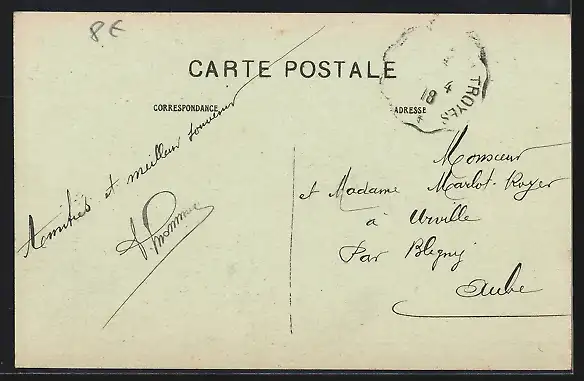 8€
CARTE POSTALE
CORRESPONDANCE
ADRESSE
TROYES
4
18
Amitiés et meilleur souvenir
Monsieur
et Madame Marlot-Royer
à Urville
Par Bligny
Aube